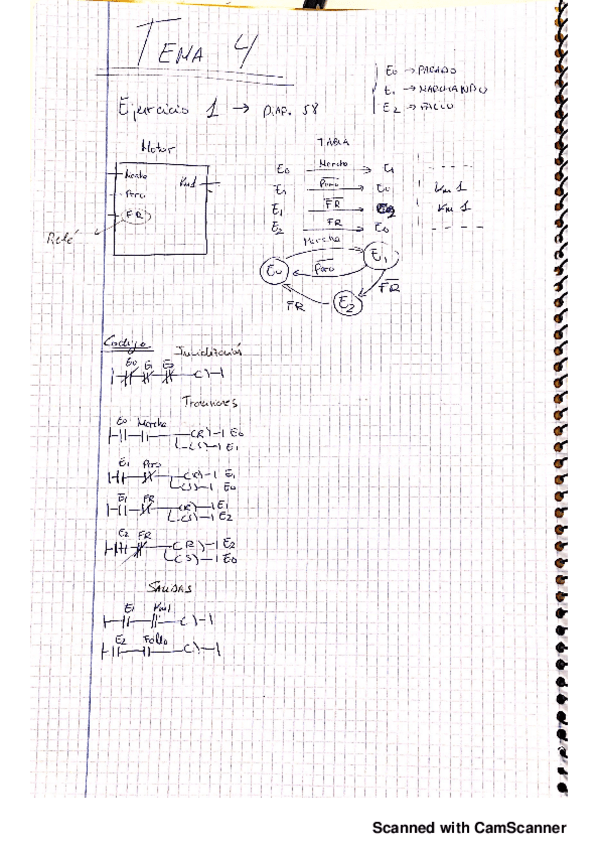 TEMA 4
E0 → PARADO
E1 → MARCHANDO
E2 → FALLO
Ejercicio 1 → DIAP. 58
Motor
Marcha
Km1
Paro
FR
Relé
TABLA
E0 Marcha → E1 - - - -
E1 Paro → E0 Km 1
E1 FR → E2 Km 1
E2 FR → E0 - - - -
Marcha
E0
E1
Paro
FR
FR
E2
Codigo
E0 E1 E2
( )
Transiciones
E0 Marcha
(R) E0
(S) E1
E1 Paro
(R) E1
(S) E0
E1 FR
(R) E1
(S) E2
E2 FR
(R) E2
(S) E0
SALIDAS
E1 Km1
( )
E2 Fallo
( )
Scanned with CamScanner